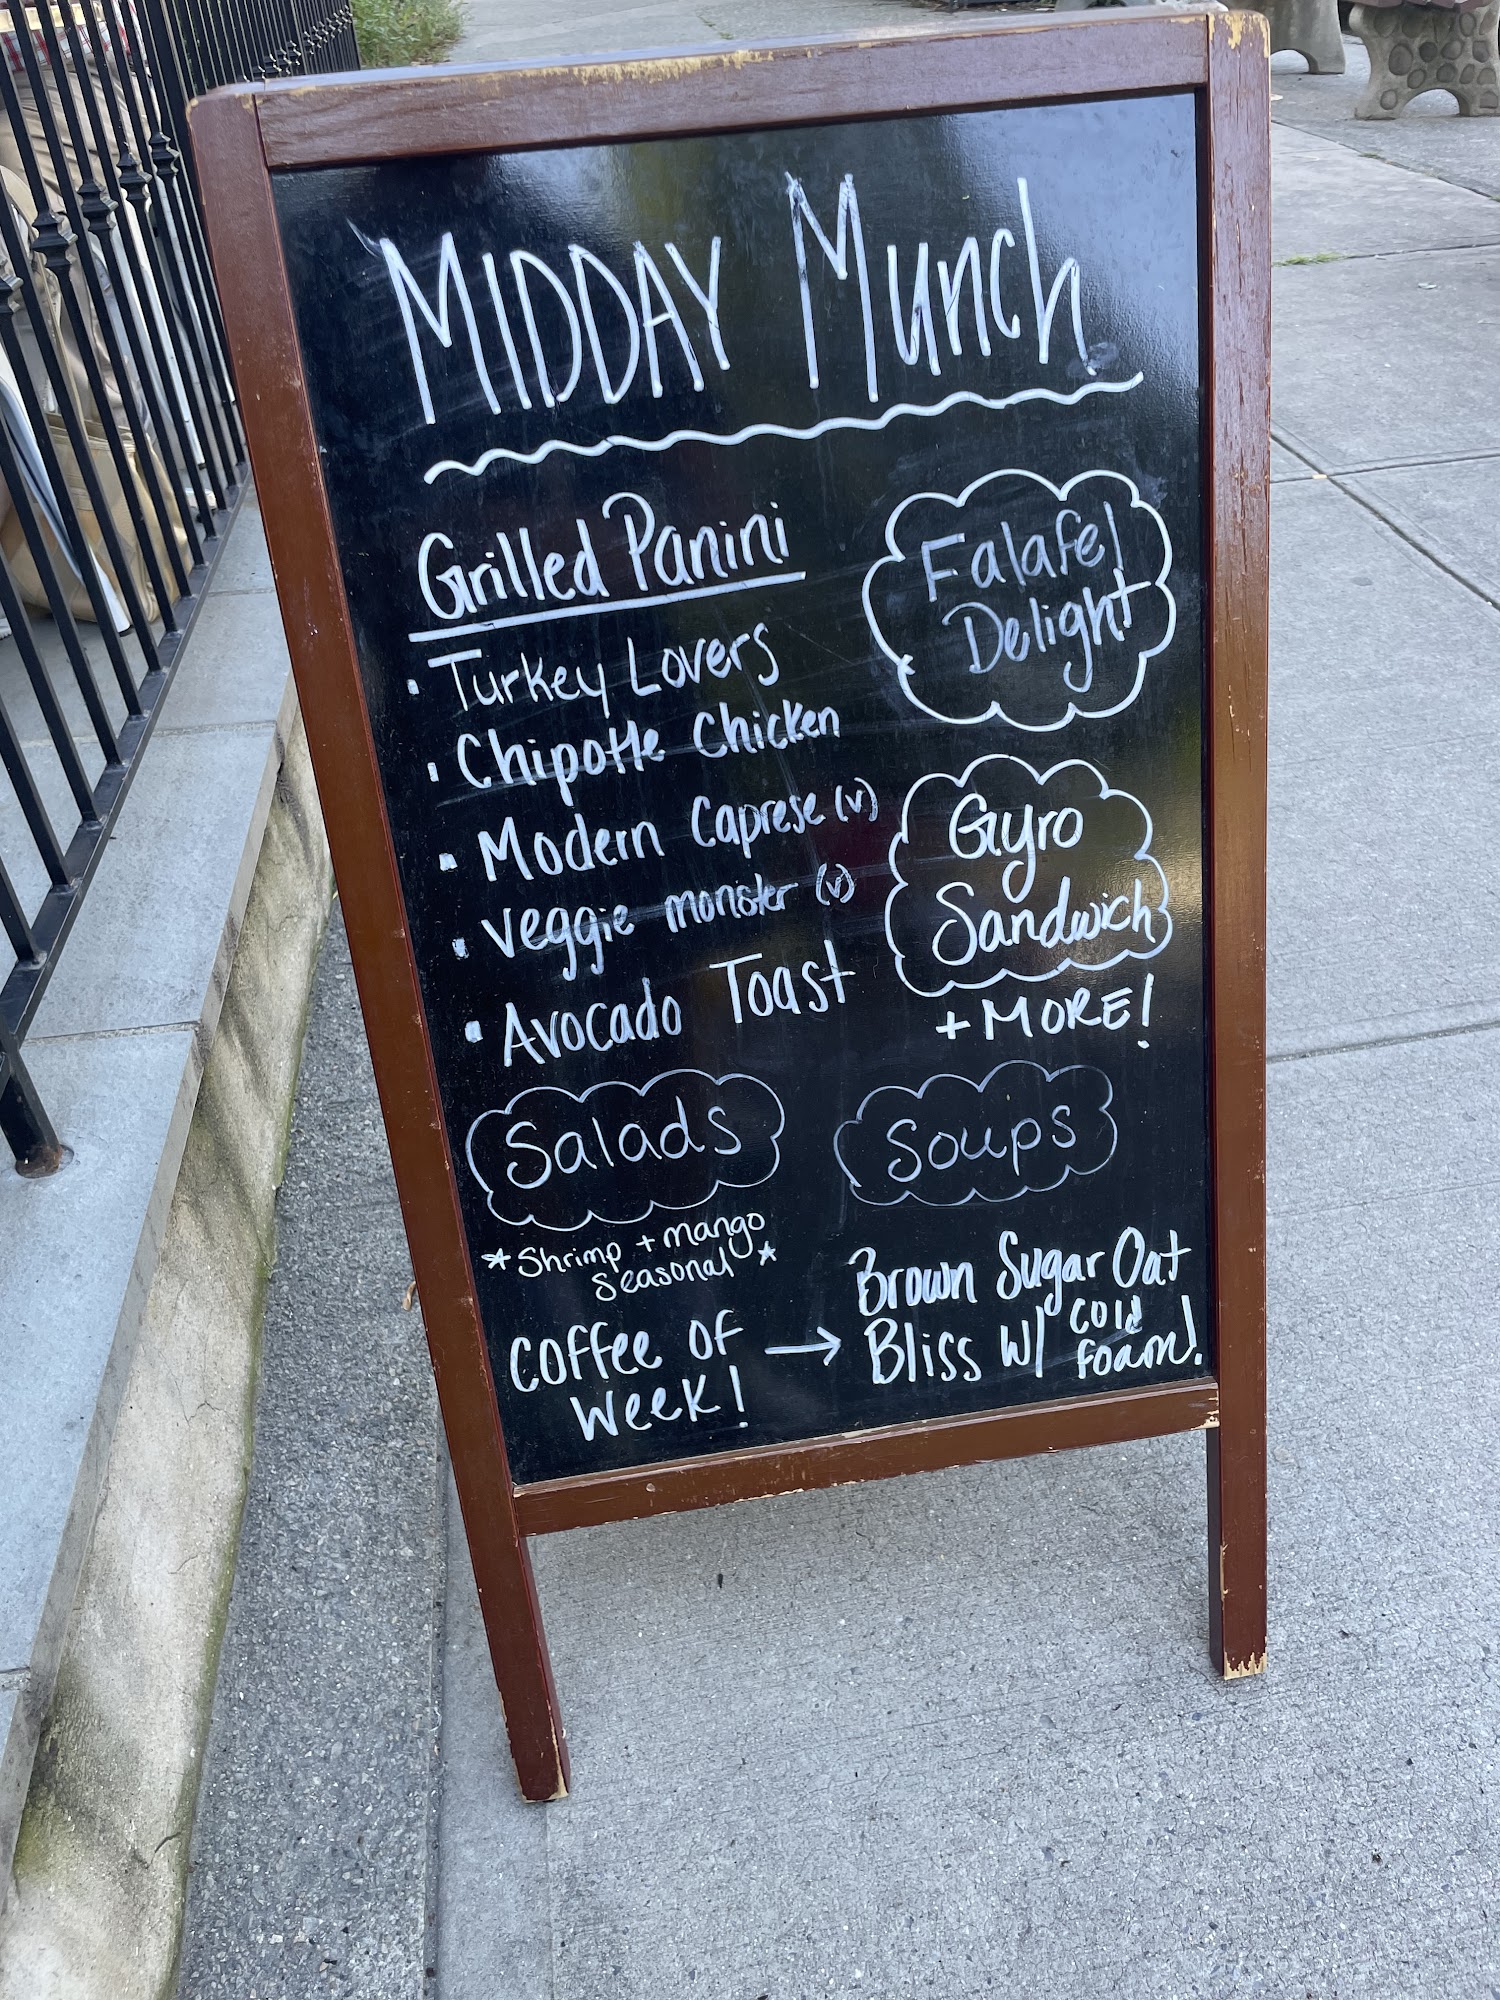 MIDDAY Munch
Grilled Panini
· Turkey Lovers
· Chipotle Chicken
· Modern Caprese (v)
· Veggie monster (v)
· Avocado Toast
Falafel
Delight
Gyro
Sandwich
+ MORE!
Salads
*Shrimp + mango
seasonal*
Soups
Coffee of
Week! →
Brown Sugar Oat
Bliss w/ cold
foam!